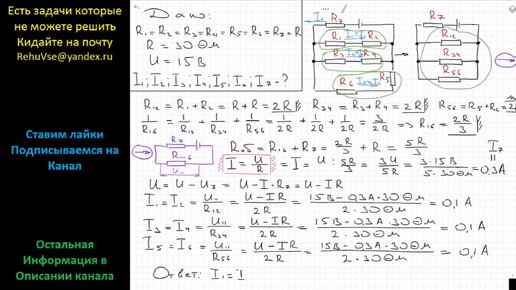 Есть задачи которые
не можете решить
Кидайте на почту
RehuVse@yandex.ru
Ставим лайки
Подписываемся на
Канал
Остальная
Информация в
Описании канала
Дано:
R₁=R₂=R₃=R₄=R₅=R₆=R₇=R
R = 30 Ом
U = 15 В
I₁; I₂; I₃; I₄; I₅; I₆; I₇ - ?
I₇ R₇
R₁ I₁=I₂ R₂
R₃ I₃=I₄ R₄
R₆ I₅=I₆ R₅
R₇
R₁₂
R₃₄
R₅₆
R₁₂ = R₁ + R₂ = R + R = 2R || R₃₄ = R₃ + R₄ = 2R || R₅₆ = R₅ + R₆ = 2R
1/R₁₆ = 1/R₁₂ + 1/R₃₄ + 1/R₅₆ = 1/2R + 1/2R + 1/2R = 3/2R => R₁₋₆ = 2R/3
R₇
R₁₋₆
U₁₁
Rоб = R₁₋₆ + R₇ = 2R/3 + R = 5R/3
I = U/R = I = U : 5R/3 = 3U/5R = 3·15В/5·30 Ом = 0,3А
I₇
U = U - U₇ = U - I·R₇ = U - IR
I₁ = I₂ = U₁₁/R₁₂ = U-IR/2R = 15В-0,3А·30 Ом/2·30 Ом = 0,1 А
I₃ = I₄ = U₁₁/R₃₄ = U-IR/2R = 15В-0,3А·30 Ом/2·30 Ом = 0,1 А
I₅ = I₆ = U₁₁/R₅₆ = U-IR/2R = 15В-0,3А·30 Ом/2·30 Ом = 0,1 А
Ответ: I₁ = I